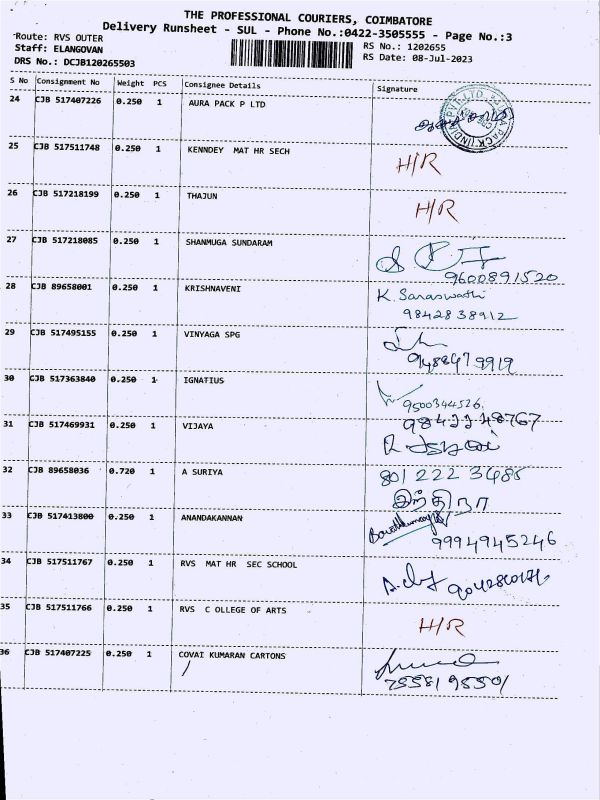 THE PROFESSIONAL COURIERS, COIMBATORE
Delivery Runsheet - SUL - Phone No.:0422-3505555 - Page No.:3
Route: RVS OUTER
RS No.: 1202655
Staff: ELANGOVAN
RS Date: 08-Jul-2023
DRS No.: DCJB120265503
S No Consignment No Weight PCS Consignee Details Signature
24 CJB 517407226 0.250 1 AURA PACK P LTD
25 CJB 517511748 0.250 1 KENNDEY MAT HR SECH H/R
26 CJB 517218199 0.250 1 THAJUN H/R
27 CJB 517218085 0.250 1 SHANMUGA SUNDARAM
9600891520
28 CJB 89658001 0.250 1 KRISHNAVENI K. Saraswathi
9842838912
29 CJB 517495155 0.250 1 VINYAGA SPG
30 CJB 517363840 0.250 1 IGNATIUS
9500344526
31 CJB 517469931 0.250 1 VIJAYA
32 CJB 89658036 0.720 1 A SURIYA 801 222 3485
இந்திரா
33 CJB 517413800 0.250 1 ANANDAKANNAN
9994945246
34 CJB 517511767 0.250 1 RVS MAT HR SEC SCHOOL
35 CJB 517511766 0.250 1 RVS C OLLEGE OF ARTS H/R
36 CJB 517407225 0.250 1 COVAI KUMARAN CARTONS